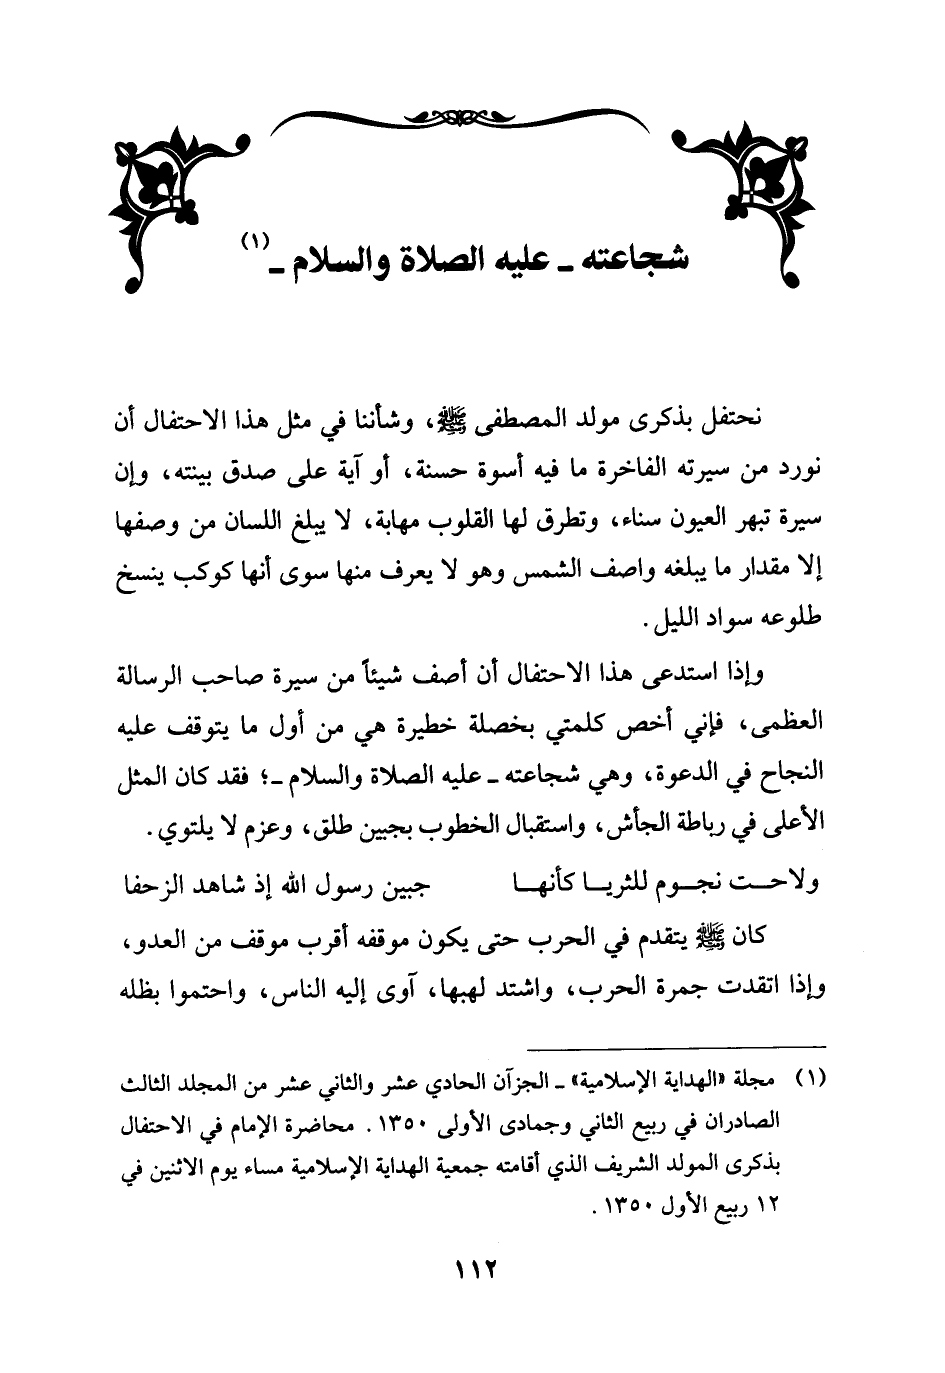 شجاعته ـ عليه الصلاة والسلام ـ(١)
نحتفل بذكرى مولد المصطفى ﷺ، وشأننا في مثل هذا الاحتفال أن
نورد من سيرته الفاخرة ما فيه أسوة حسنة، أو آية على صدق بينته، وإن
سيرة تبهر العيون سناء، وتطرق لها القلوب مهابة، لا يبلغ اللسان من وصفها
إلا مقدار ما يبلغه واصف الشمس وهو لا يعرف منها سوى أنها كوكب ينسخ
طلوعه سواد الليل.
وإذا استدعى هذا الاحتفال أن أصف شيئاً من سيرة صاحب الرسالة
العظمى، فإني أخص كلمتي بخصلة خطيرة هي من أول ما يتوقف عليه
النجاح في الدعوة، وهي شجاعته ـ عليه الصلاة والسلام ـ؛ فقد كان المثل
الأعلى في رباطة الجأش، واستقبال الخطوب بجبين طلق، وعزم لا يلتوي.
ولاحــت نجــوم للثريــا كأنهــا جبين رسول الله إذ شاهد الزحفا
كان ﷺ يتقدم في الحرب حتى يكون موقفه أقرب موقف من العدو،
وإذا اتقدت جمرة الحرب، واشتد لهبها، آوى إليه الناس، واحتموا بظله
(١) مجلة «الهداية الإسلامية» ـ الجزآن الحادي عشر والثاني عشر من المجلد الثالث
الصادران في ربيع الثاني وجمادى الأولى ١٣٥٠. محاضرة الإمام في الاحتفال
بذكرى المولد الشريف الذي أقامته جمعية الهداية الإسلامية مساء يوم الاثنين في
١٢ ربيع الأول ١٣٥٠.
١١٢